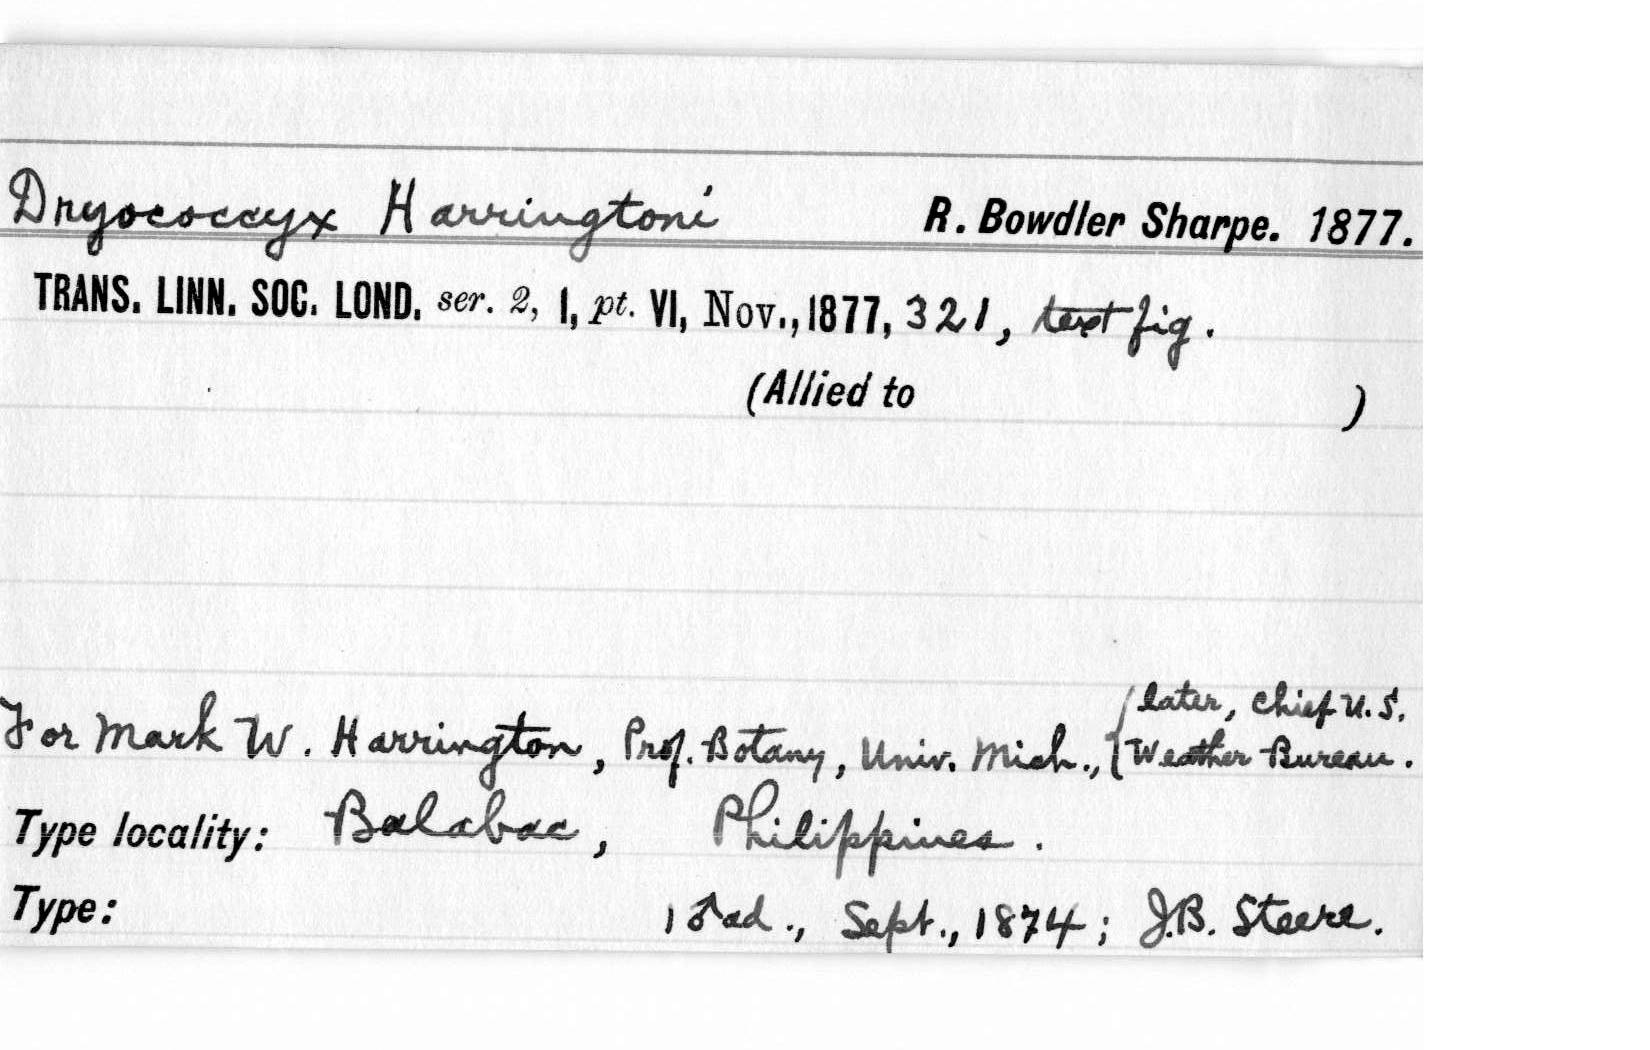 Dryococcyx Harringtoni R. Bowdler Sharpe. 1877.
TRANS. LINN. SOC. LOND. ser. 2, I, pt. VI, Nov., 1877, 321, text fig.
(Allied to )
For Mark W. Harrington, Prof. Botany, Univ. Mich., { later, chief U.S. Weather Bureau.
Type locality: Balabac, Philippines.
Type: 1 ♂ ad., Sept., 1874; J.B. Steere.